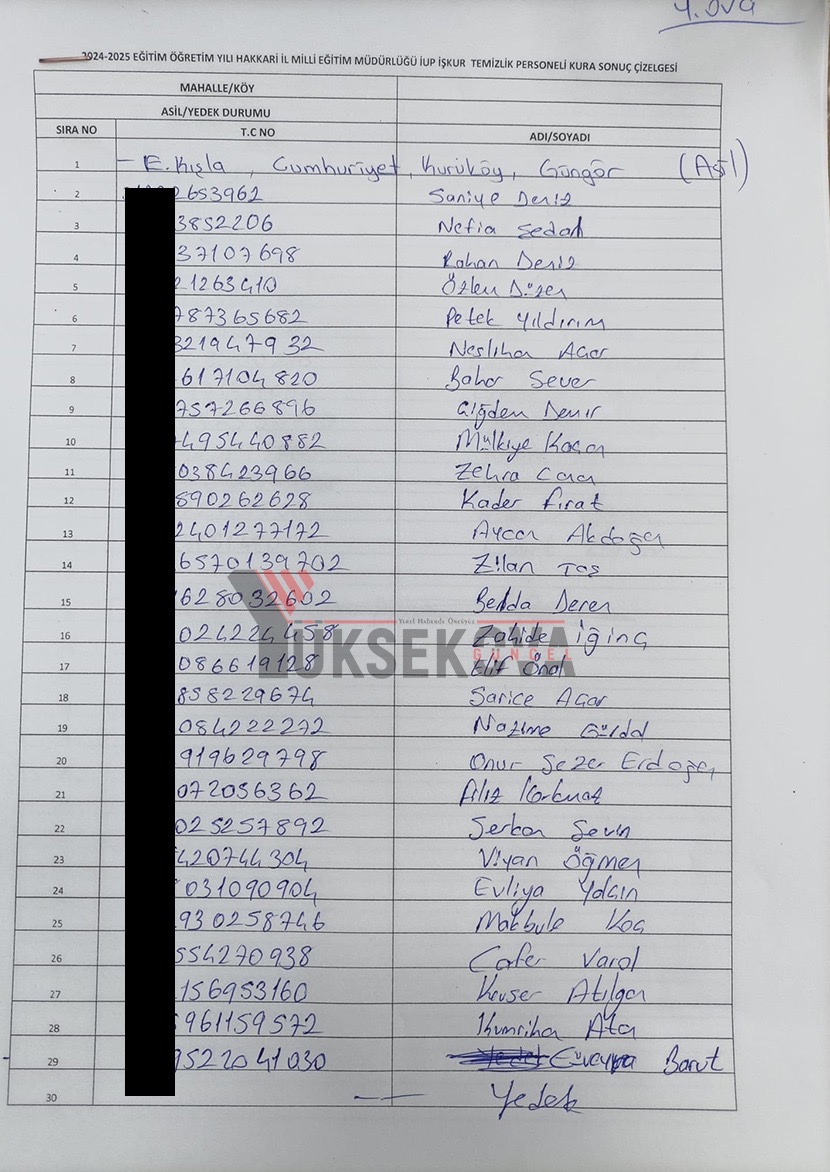 Y.OVA
2024-2025 EĞİTİM ÖĞRETİM YILI HAKKARİ İL MİLLİ EĞİTİM MÜDÜRLÜĞÜ İUP İŞKUR TEMİZLİK PERSONELİ KURA SONUÇ ÇİZELGESİ
MAHALLE/KÖY
ASİL/YEDEK DURUMU
SIRA NO T.C NO ADI/SOYADI
1 - E.Kışla, Cumhuriyet, Kuruköy, Güngör (Asil)
2 2653962 Saniye Deniz
3 3852206 Nefia Sedan
4 37107698 Rohan Deniz
5 21263410 Özlem Düzen
6 787365682 Petek Yıldırım
7 321947932 Neslihan Acar
8 617104820 Bahar Sever
9 757266896 Çiğdem Demir
10 4495440882 Mülkiye Koçan
11 038423966 Zehra
12 890262628 Kader Fırat
13 2401277172 Aycan Akdoğan
14 6570139702 Zilan Taş
15 628032602 Deren
YÜKSEKOVA
Yerel Haberde Öncünüz
GÜNCEL
16 024224458 Zahide İğinç
17 086619128 Elif Önal
18 858229674 Sarice Acar
19 084222272 Nazime
20 919629798 Onur Sezer Erdoğan
21 072056362 Filiz Korkmaz
22 025257892 Serkan Sevin
23 420744304 Viyan Öğmen
24 031090904 Evliya Yalçın
25 930258746 Makbule Koç
26 554270938 Cafer Varol
27 156953160 Kevser Atılgan
28 5961159572 Kumriha Ata
29 9522041030 Barut
30 — Yedek